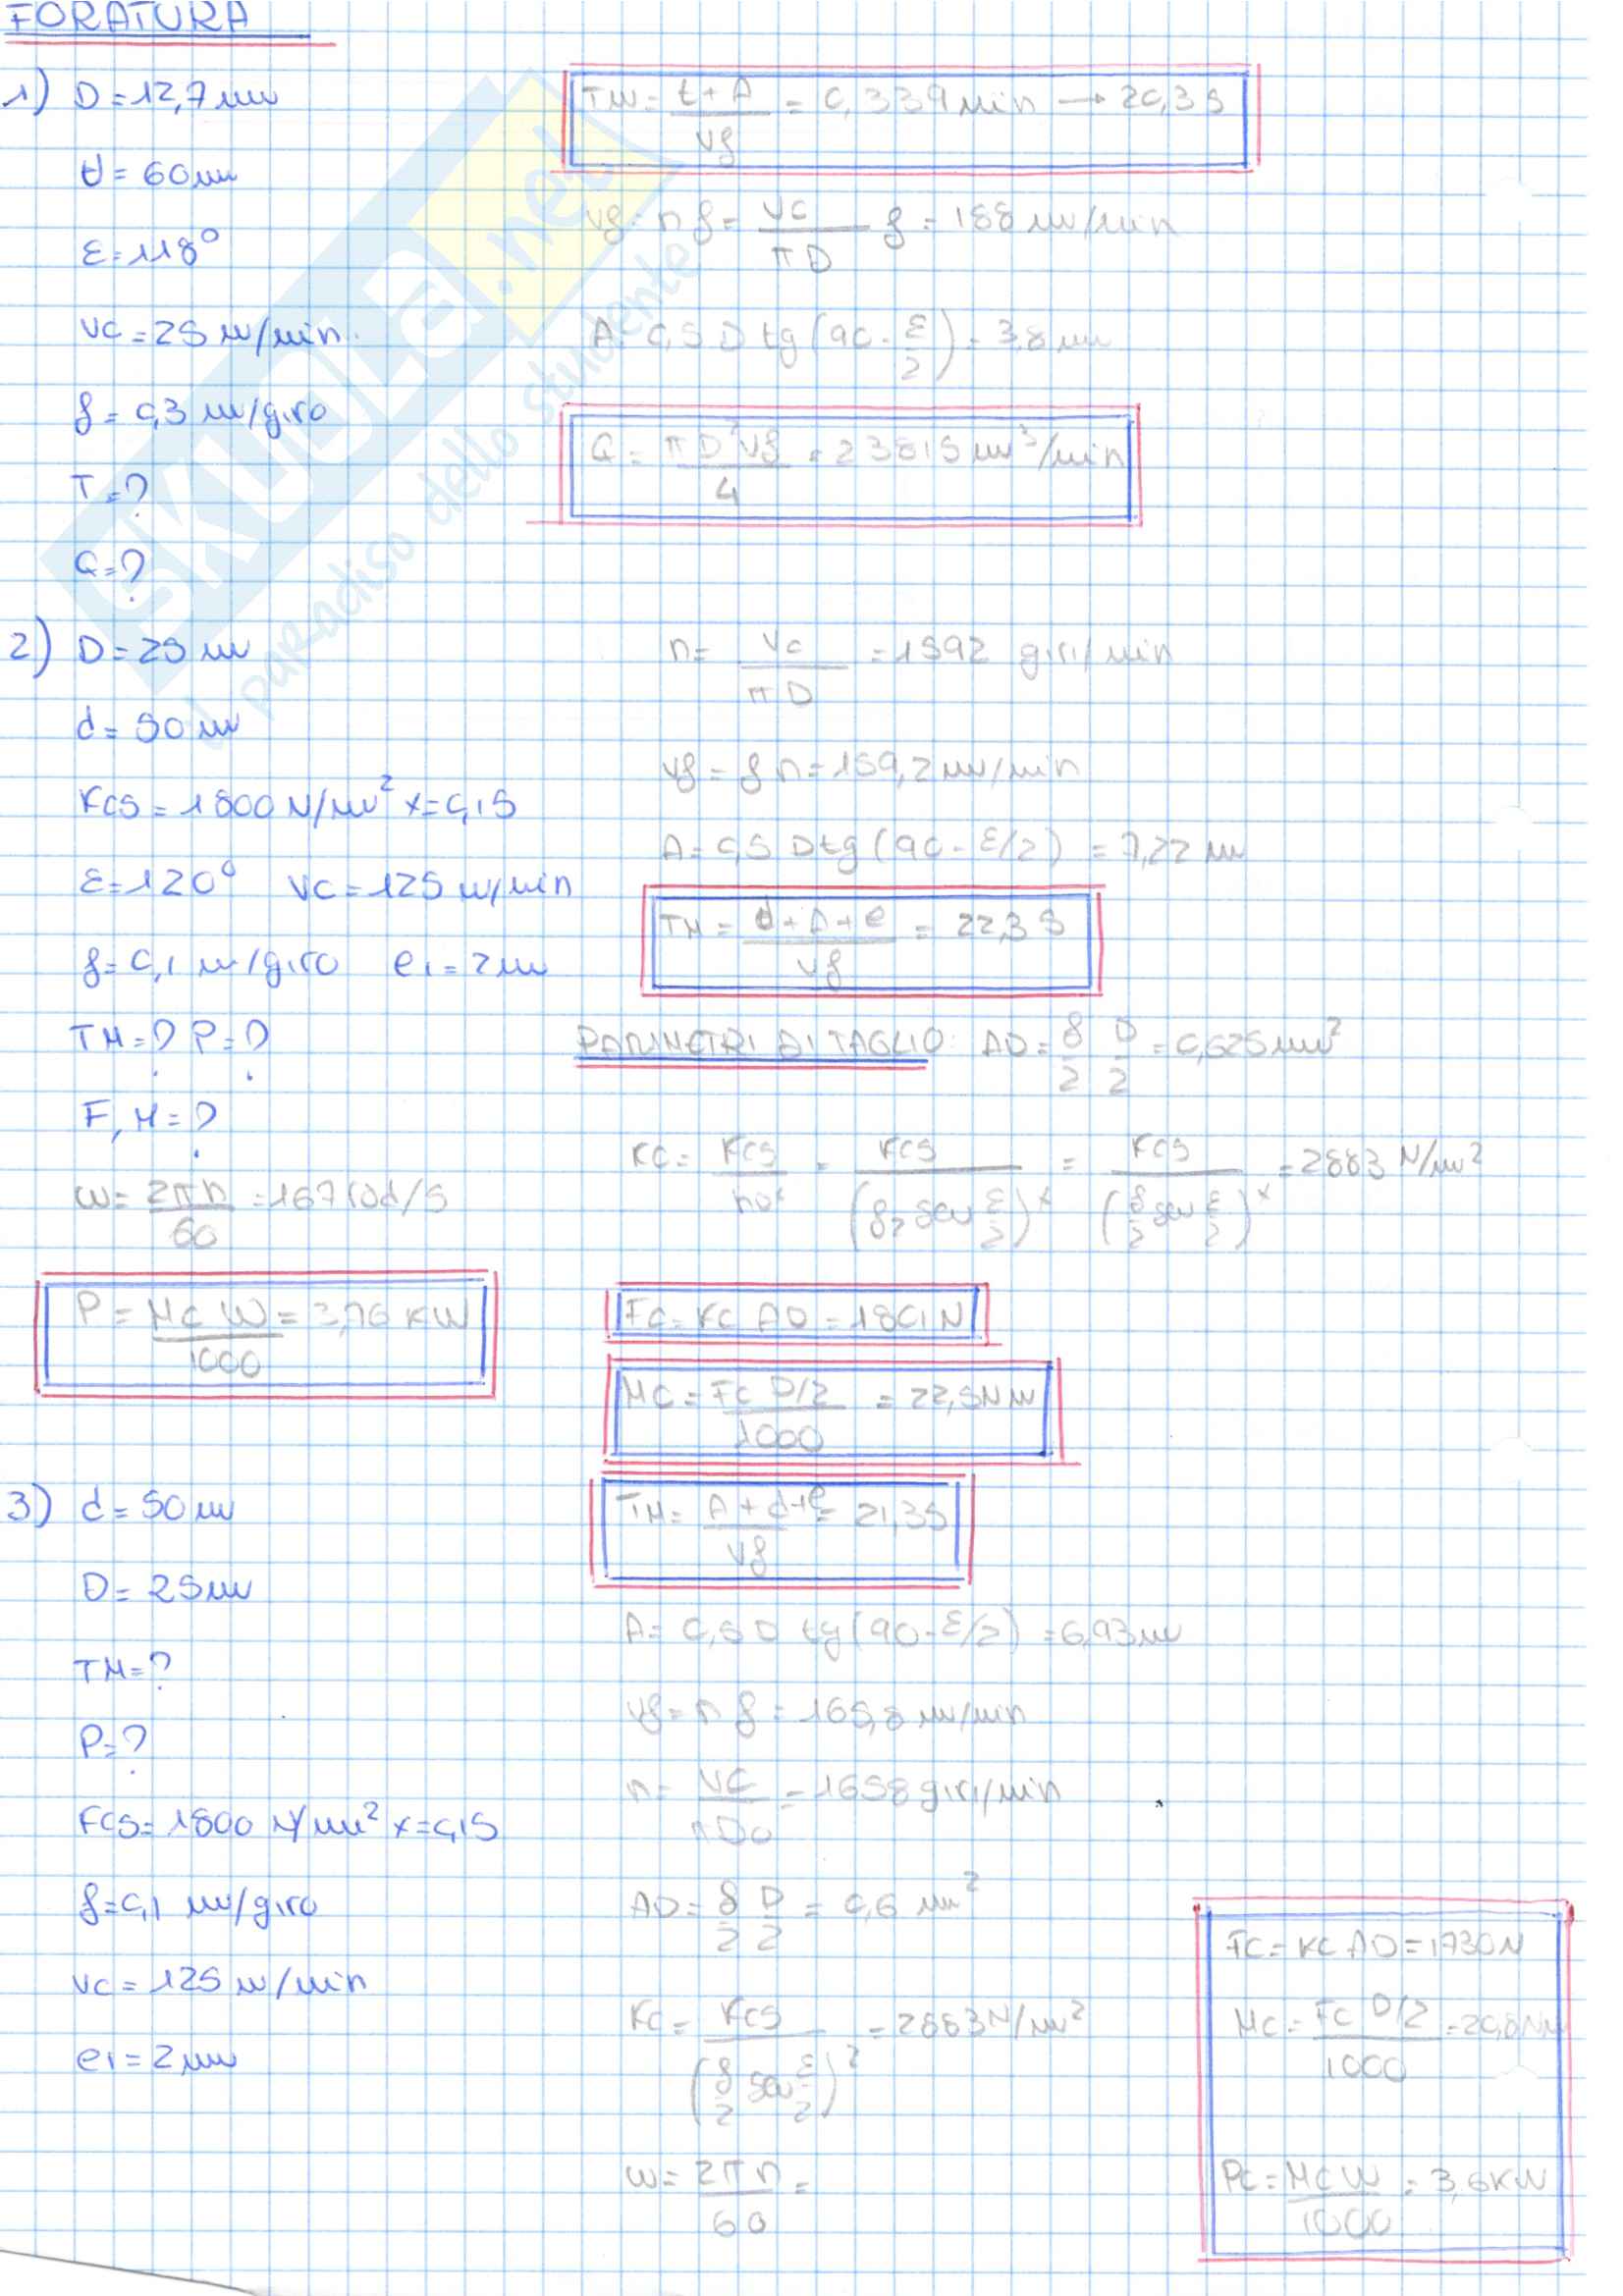 FORATURA
1) D = 12,7 mm
t = 60 mm
ε = 118°
VC = 25 m/min
f = 0,3 mm/giro
T = ?
Q = ?
TM = (t + A)/Vf = 0,339 min → 20,3 s
Vf = n f = VC/(πD) f = 188 mm/min
A = 0,5 D tg(90 - ε/2) = 3,8 mm
Q = πD²Vf/4 = 23815 mm³/min
2) D = 25 mm
d = 50 mm
KCS = 1800 N/mm² x = 0,15
ε = 120° VC = 125 m/min
f = 0,1 mm/giro e1 = 2 mm
TM = ? P = ?
F, M = ?
ω = 2πn/60 = 167 rad/s
P = MC W/1000 = 3,76 KW
n = VC/(πD) = 1592 giri/min
Vf = f n = 159,2 mm/min
A = 0,5 D tg(90 - ε/2) = 7,22 mm
TM = (d + A + e)/Vf = 22,3 s
PARAMETRI DI TAGLIO: AD = f/2 D/2 = 0,625 mm²
KC = KCS/hDˣ = KCS/(fz sen ε/2)ˣ = KCS/(f/2 sen ε/2)ˣ = 2883 N/mm²
FC = KC AD = 1801 N
MC = FC D/2/1000 = 22,5 Nm
3) d = 50 mm
D = 25 mm
TM = ?
P = ?
KCS = 1800 N/mm² x = 0,15
f = 0,1 mm/giro
VC = 125 m/min
e1 = 2 mm
TM = (A + d + e)/Vf = 21,3 s
A = 0,5 D tg(90 - ε/2) = 6,93 mm
Vf = n f = 165,8 mm/min
n = VC/(πD0) = 1658 giri/min
AD = f/2 D/2 = 0,6 mm²
KC = KCS/(f/2 sen ε/2)² = 2883 N/mm²
ω = 2πn/60 =
FC = KC AD = 1730 N
MC = FC D/2/1000 = 20,8 Nm
PC = MC W/1000 = 3,6 KW
SKUOLA.net
il paradiso dello studente